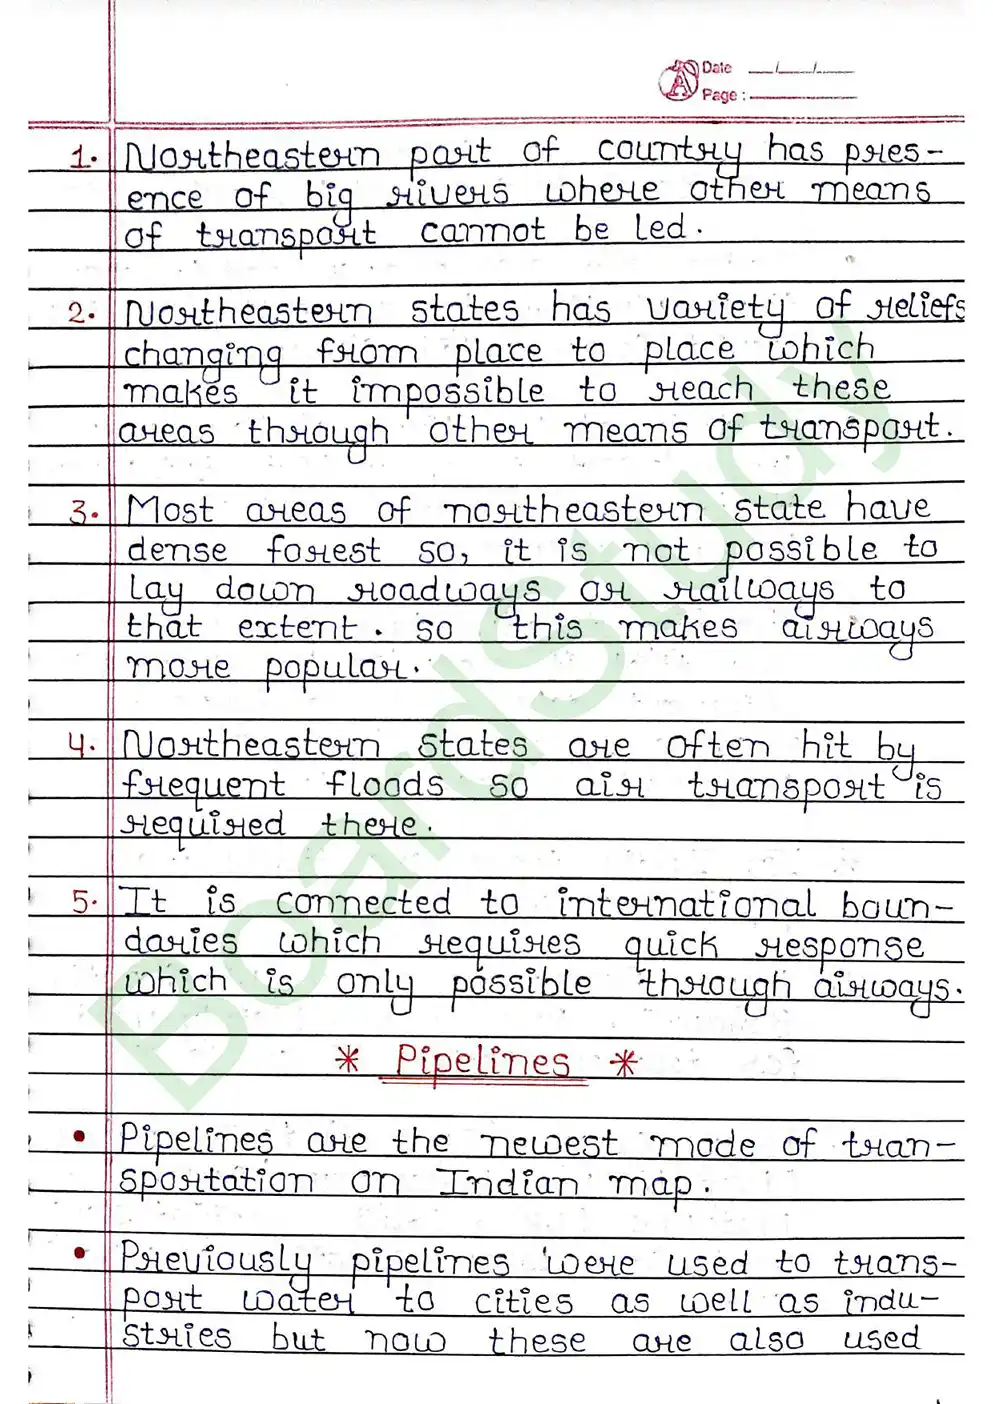 Date __/__/__
Page : ________
1. Northeastern part of country has pres-
ence of big rivers where other means
of transport cannot be led.
2. Northeastern states has variety of reliefs
changing from place to place which
makes it impossible to reach these
areas through other means of transport.
3. Most areas of northeastern state have
dense forest so, it is not possible to
lay down roadways or railways to
that extent. so this makes airways
more popular.
4. Northeastern states are often hit by
frequent floods so air transport is
required there.
5. It is connected to international boun-
daries which requires quick response
which is only possible through airways.
* Pipelines *
• Pipelines are the newest mode of tran-
sportation on Indian map.
• Previously pipelines were used to trans-
port water to cities as well as indu-
stries but now these are also used
BoardStudy